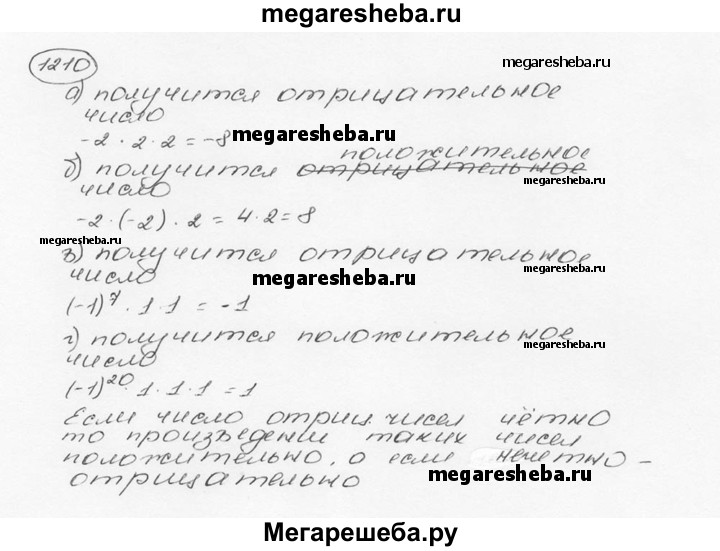 megaresheba.ru
1210
megaresheba.ru
а) получится отрицательное
число
-2 · 2 · 2 = -8
megaresheba.ru
положительное
б) получится отрицательное
число
megaresheba.ru
-2 · (-2) · 2 = 4 · 2 = 8
megaresheba.ru
в) получится отрицательное
число
megaresheba.ru
(-1)⁷ · 1 · 1 = -1
г) получится положительное
число
megaresheba.ru
(-1)²⁰ · 1 · 1 · 1 = 1
Если число отриц. чисел чётно
то произведении таких чисел
положительно, а если нечетно -
отрицательно
megaresheba.ru
Мегарешеба.ру